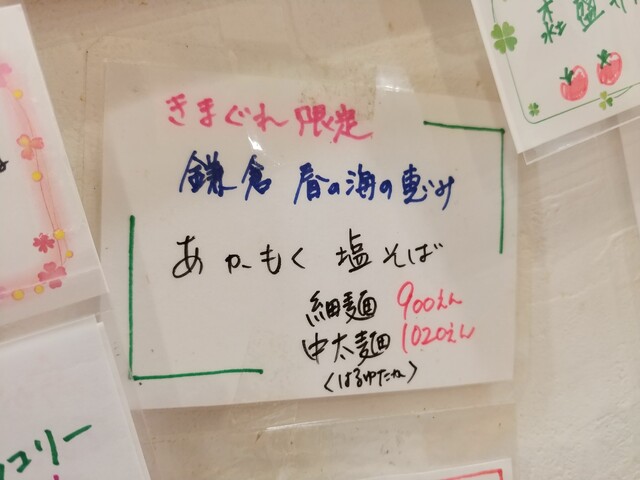 きまぐれ限定
鎌倉 春の海の恵み
あかもく 塩そば
細麺 900えん
中太麺 1020えん
(はるゆたか)
コリー